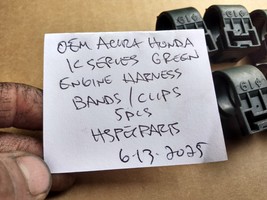 OEM ACURA HONDA
K SERIES GREEN
ENGINE HARNESS
BANDS/CLIPS
5PCS
HSPECPARTS
6-13-2025